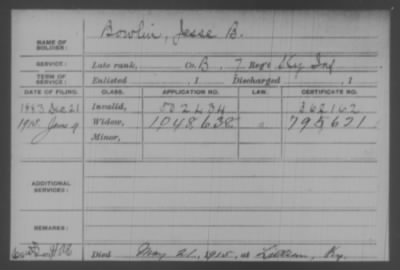 NAME OF SOLDIER: Bowlin, Jesse B.
SERVICE: Late rank, Co. B, 7 Reg't Ky Inf
TERM OF SERVICE: Enlisted , 1 Discharged , 1
DATE OF FILING. CLASS. APPLICATION NO. LAW. CERTIFICATE NO.
1883 Dec 21 Invalid, 502434 362162
1915 June 9 Widow, 1048632 " 795621
Minor,
ADDITIONAL SERVICES:
REMARKS:
Died May 21, 1915, at Ky.